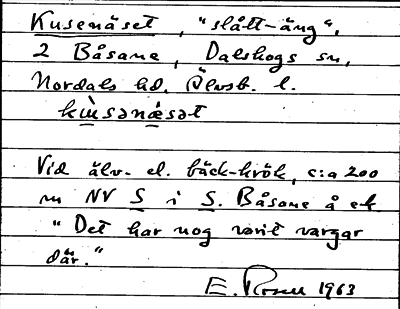 Kusenäset, "slått-äng",
2 Båsane, Dalskogs sn,
Nordals hd. Älvsb. l.
kɯ̀sənæ̀sət
Vid älv- el. bäck-krök, c:a 200
m NV S i S. Båsane å ek.
"Det har nog varit vargar
där."
E. Rosen 1963